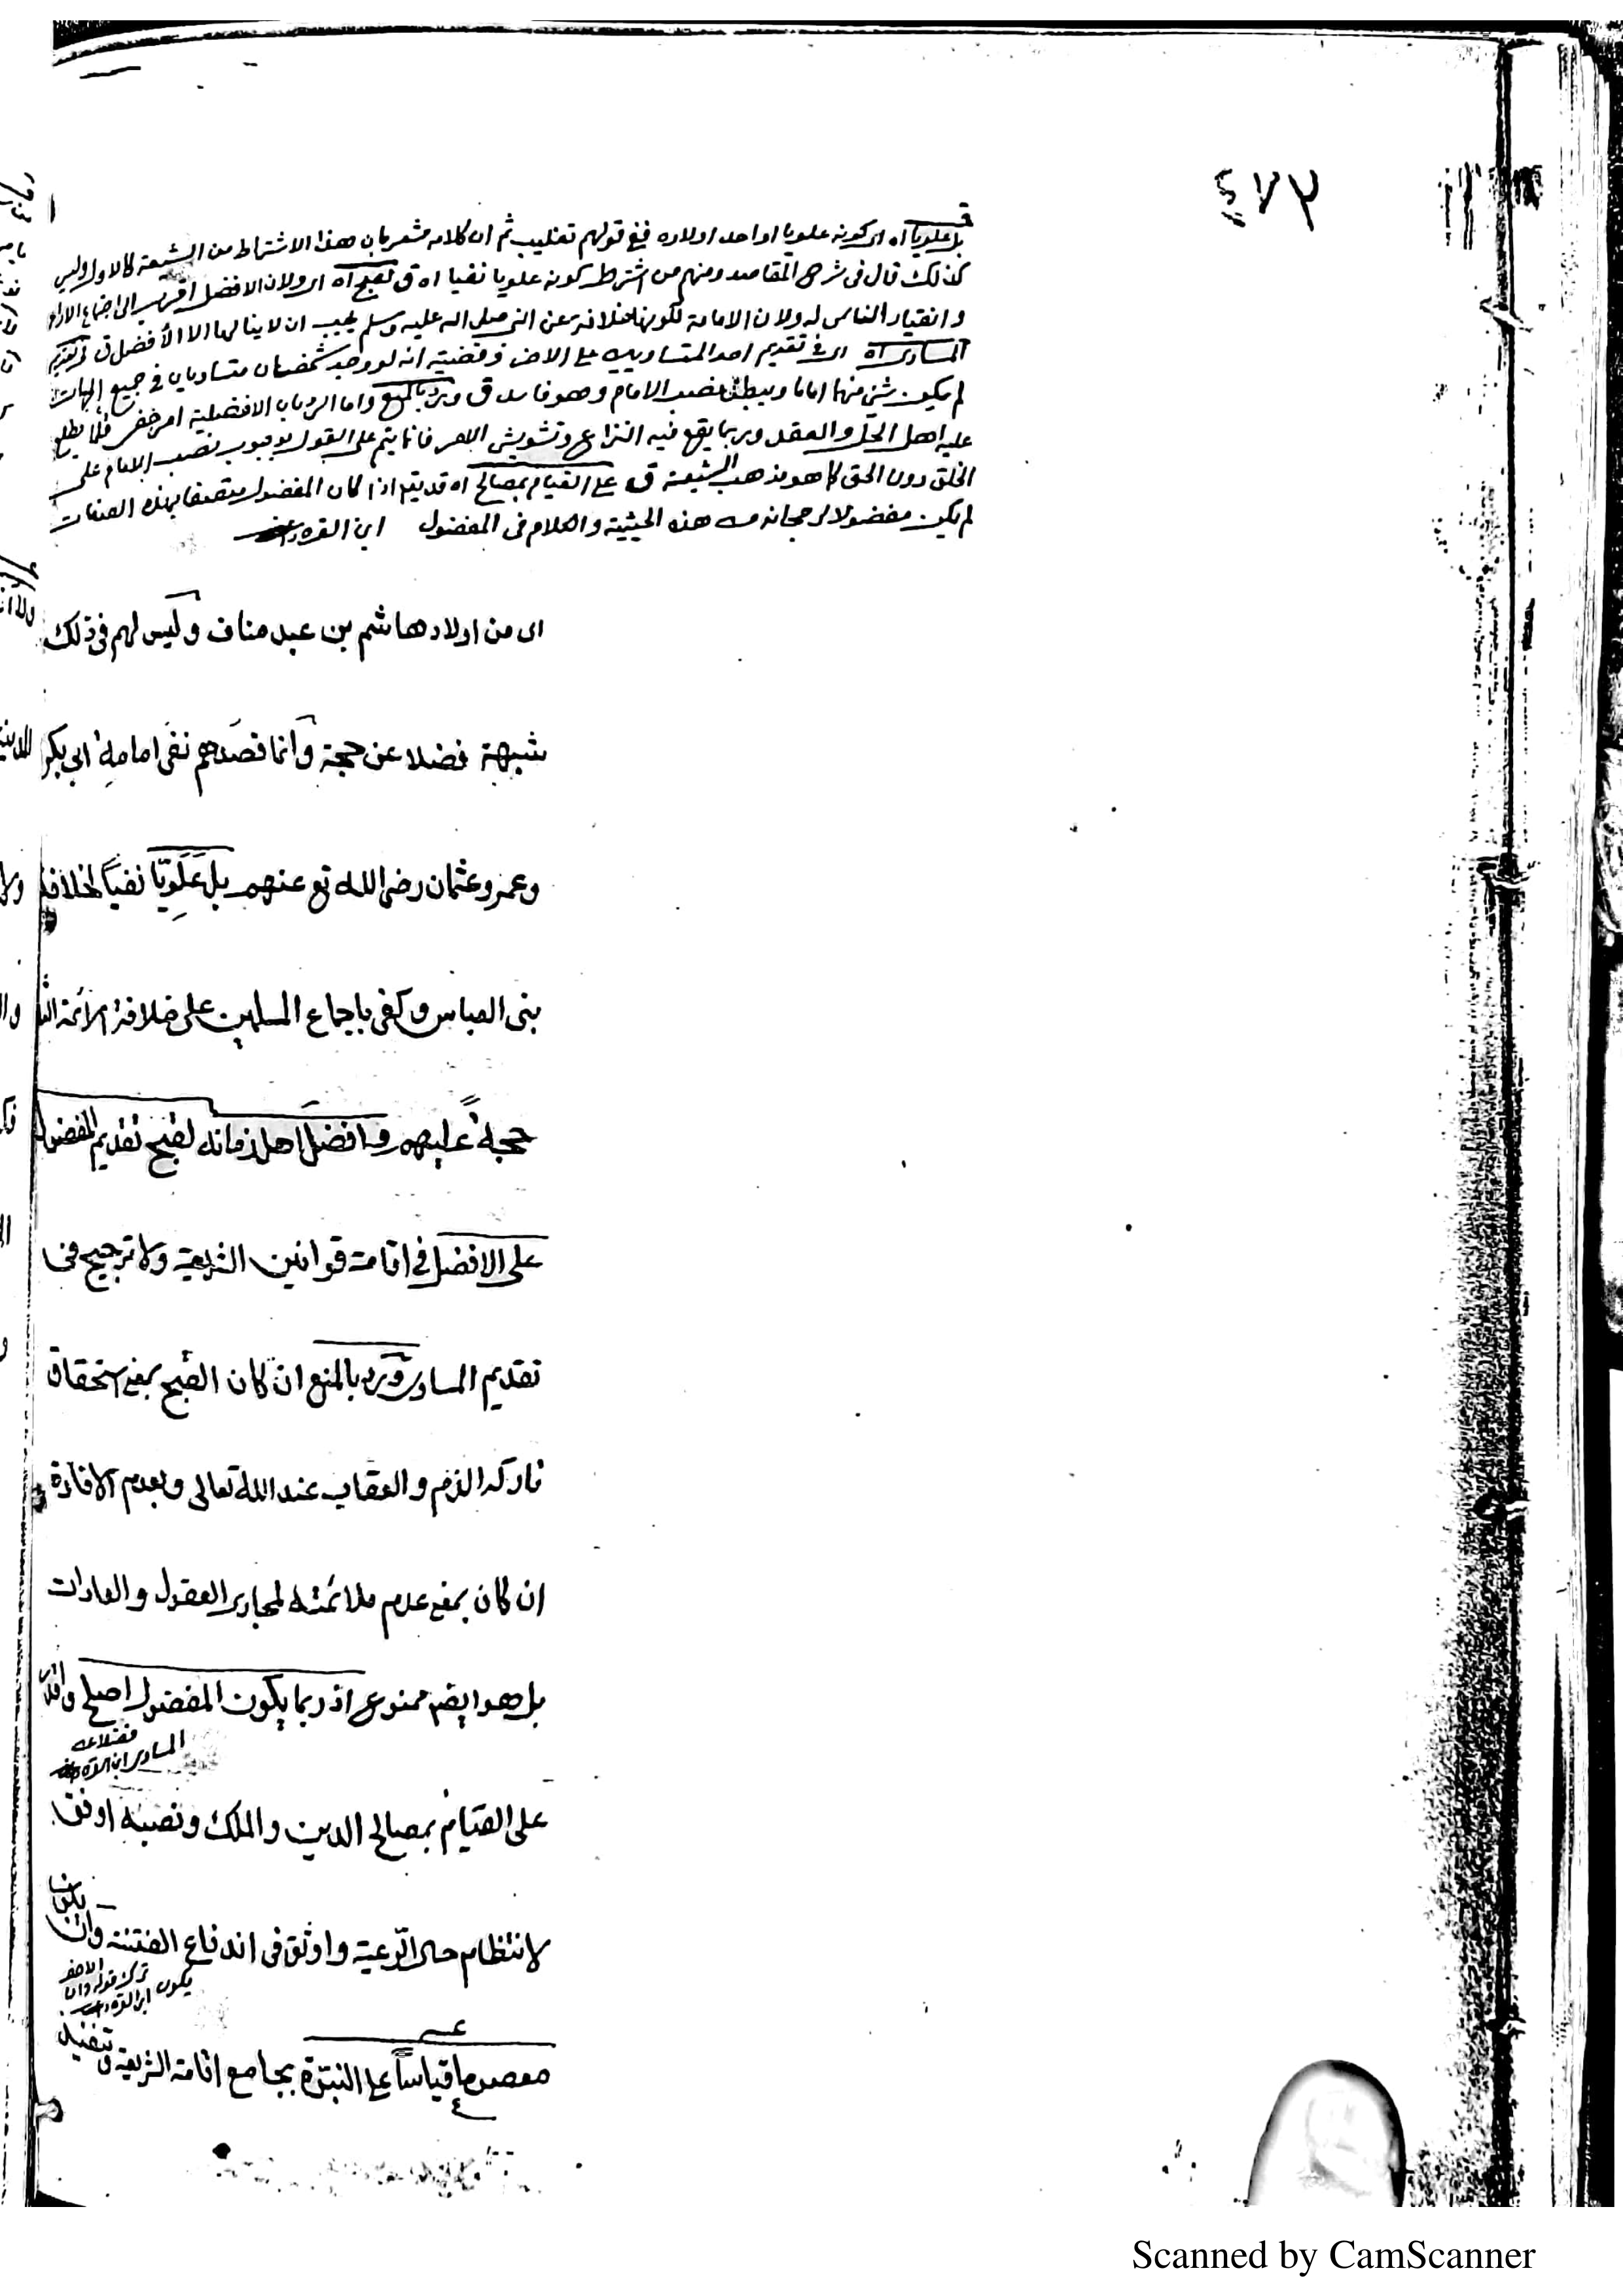 ٤٧٣
ق
بل علويا اه اى كونه علويا او احد اولاده ففى قولهم تغليب ثم ان كلامه مشعر بان هذا الاشتراط من الشيعة كالاول وليس
كذلك قال فى شرح المقاصد ومنهم من اشترط كونه علويا نفيا اه ق لقبح اه اى ولان الافضل اقرب الى اجتماع الاراء
وانقياد الناس له ولان الامامة لكونها خلافة عن النبى صلى الله عليه وسلم يجب ان لا ينالها الا الأفضل ق فى تقديم
المساوى اه اى فى تقديم احد المتساويين على الاخر وقضيته انه لو وجد شخصان متساويان فى جميع الجهات
لم يكون شئ منهما اماما ويبطل نصب الامام وهو فاسد ق ورد بالمنع واما الرد بان الافضلية امر خفى قلما يطلع
عليه اهل الحل والعقد وربما يقع فيه النزاع وتشويش الامر فانما يتم على القول بوجوب نصب الامام على
الخلق دون الحق كما هو مذهب الشيعة ق على القيام بمصالح اه قد يقال اذا كان المفضول متصفا بهذه الصفات
لم يكن مفضولا لرجحانه من هذه الحيثية والكلام فى المفضول ابن القره داغى
اى من اولاد هاشم بن عبد مناف وليس لهم فى ذلك
شبهة فضلا عن حجة وانما قصدهم نفى امامة ابى بكر
وعمر وعثمان رضى الله تع عنهم بل علويّا نفياً لخلافة
بنى العباس وكفى باجماع المسلمين على خلافة الائمة الثلثة
حجةً عليهم وافضل اهل زمانه لقبح تقديم المفضول
على الافضل فى اقامة قوانين الشريعة ولا ترجيح فى
تقديم المساوى ورد بالمنع ان كان القبح بمعنى استحقاق
تاركه الذم والعقاب عند الله تعالى وبعدم الافادة
ان كان بمعنى عدم ملائمته لمجارى العقول والعادات
بل هو ايضا ممنوع اذ ربما يكون المفضول اصلح واقدر
فضلا عن
المساوى ابن القره داغى
على القيام بمصالح الدين والملك ونصبه اوفق
لانتظام حال الرّعية واوثق فى اندفاع الفتنة وان يكون
يكون
معصوما قياساً على النبوّة بجامع اقامة الشريعة وتنفيذ